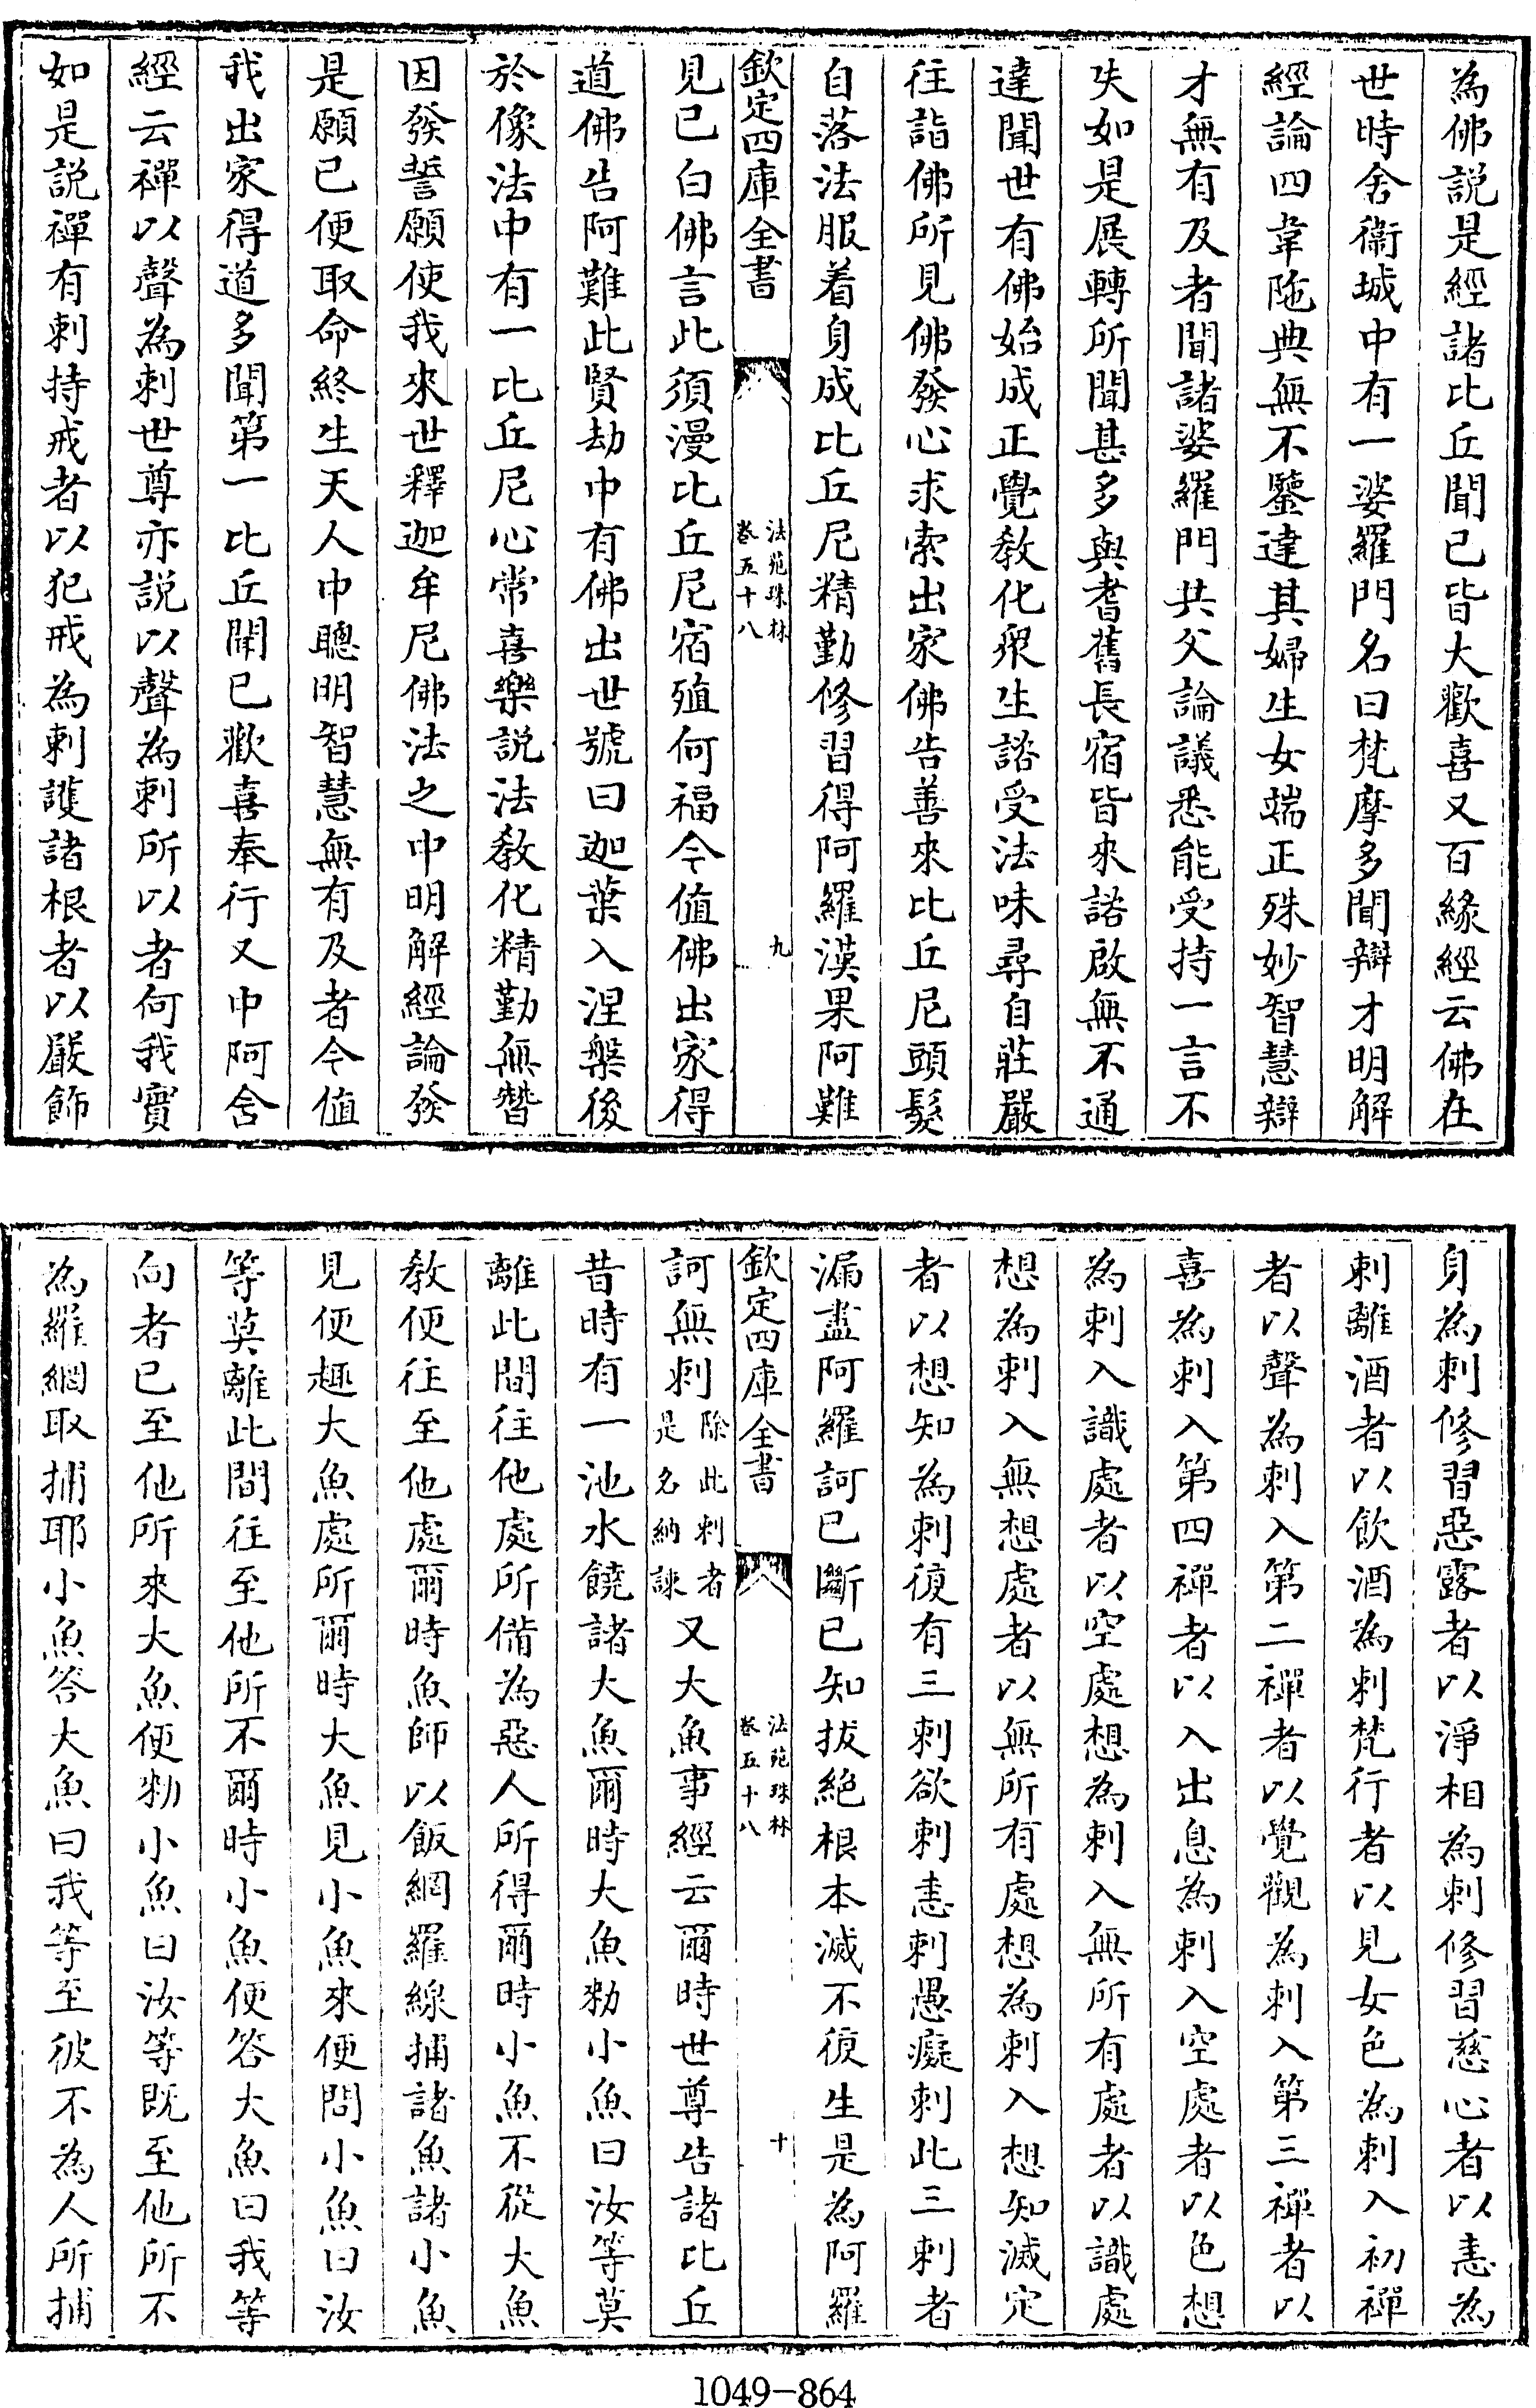 為佛説是經諸比丘聞已皆大歡喜又百緣經云佛在
世時舍衞城中有一婆羅門名曰梵摩多聞辯才明解
經論四韋陁典無不鑒達其婦生女端正殊妙智慧辯
才無有及者聞諸婆羅門共父論議悉能受持一言不
失如是展轉所聞甚多與耆舊長宿皆來諮啟無不通
達聞世有佛始成正覺教化衆生諮受法味尋自莊嚴
往詣佛所見佛發心求索出家佛告善來比丘尼頭髮
自落法服着身成比丘尼精勤修習得阿羅漢果阿難
欽定四庫全書
法苑珠林
卷五十八
九
見已白佛言此須漫比丘尼宿殖何福今值佛出家得
道佛告阿難此賢劫中有佛出世號曰迦葉入涅槃後
於像法中有一比丘尼心常喜樂説法教化精勤無朁
因發誓願使我來世釋迦牟尼佛法之中明解經論發
是願已便取命終生天人中聰明智慧無有及者今值
我出家得道多聞第一比丘聞已歡喜奉行又中阿含
經云禪以聲為刺世尊亦説以聲為刺所以者何我實
如是説禪有刺持戒者以犯戒為刺護諸根者以嚴飾
身為刺修習惡露者以淨相為刺修習慈心者以恚為
刺離酒者以飲酒為刺梵行者以見女色為刺入初禪
者以聲為刺入第二禪者以覺觀為刺入第三禪者以
喜為刺入第四禪者以入出息為刺入空處者以色想
為刺入識處者以空處想為刺入無所有處者以識處
想為刺入無想處者以無所有處想為刺入想知滅定
者以想知為刺復有三刺欲刺恚刺愚癡刺此三刺者
漏盡阿羅訶已斷已知拔絕根本滅不復生是為阿羅
欽定四庫全書
法苑珠林
卷五十八
十
訶無刺除此刺者是名納諫又大魚事經云爾時世尊告諸比丘
昔時有一池水饒諸大魚爾時大魚勑小魚曰汝等莫
離此間往他處所備為惡人所得爾時小魚不從大魚
教便往至他處爾時魚師以飯網羅線捕諸魚諸小魚
見便趣大魚處所爾時大魚見小魚來便問小魚曰汝
等莫離此間往至他所不爾時小魚便答大魚曰我等
向者已至他所來大魚便勑小魚曰汝等既至他所不
為羅網取捕耶小魚答大魚曰我等至彼不為人所捕
1049-864